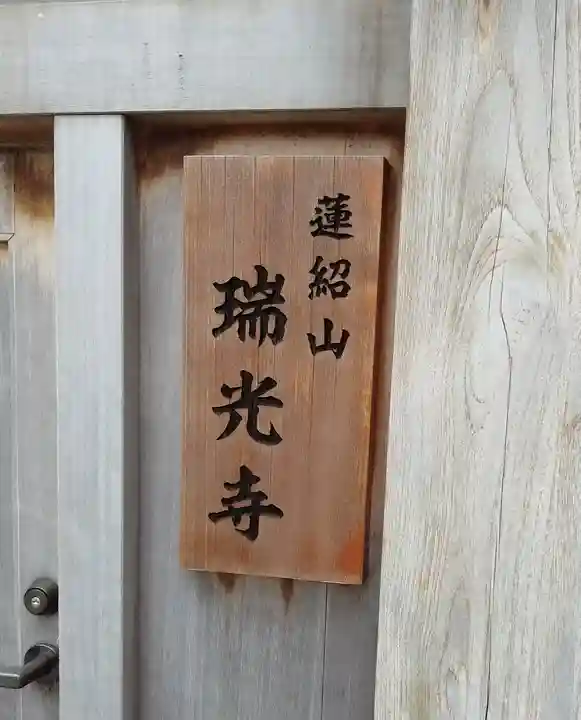 蓮紹山
瑞光寺